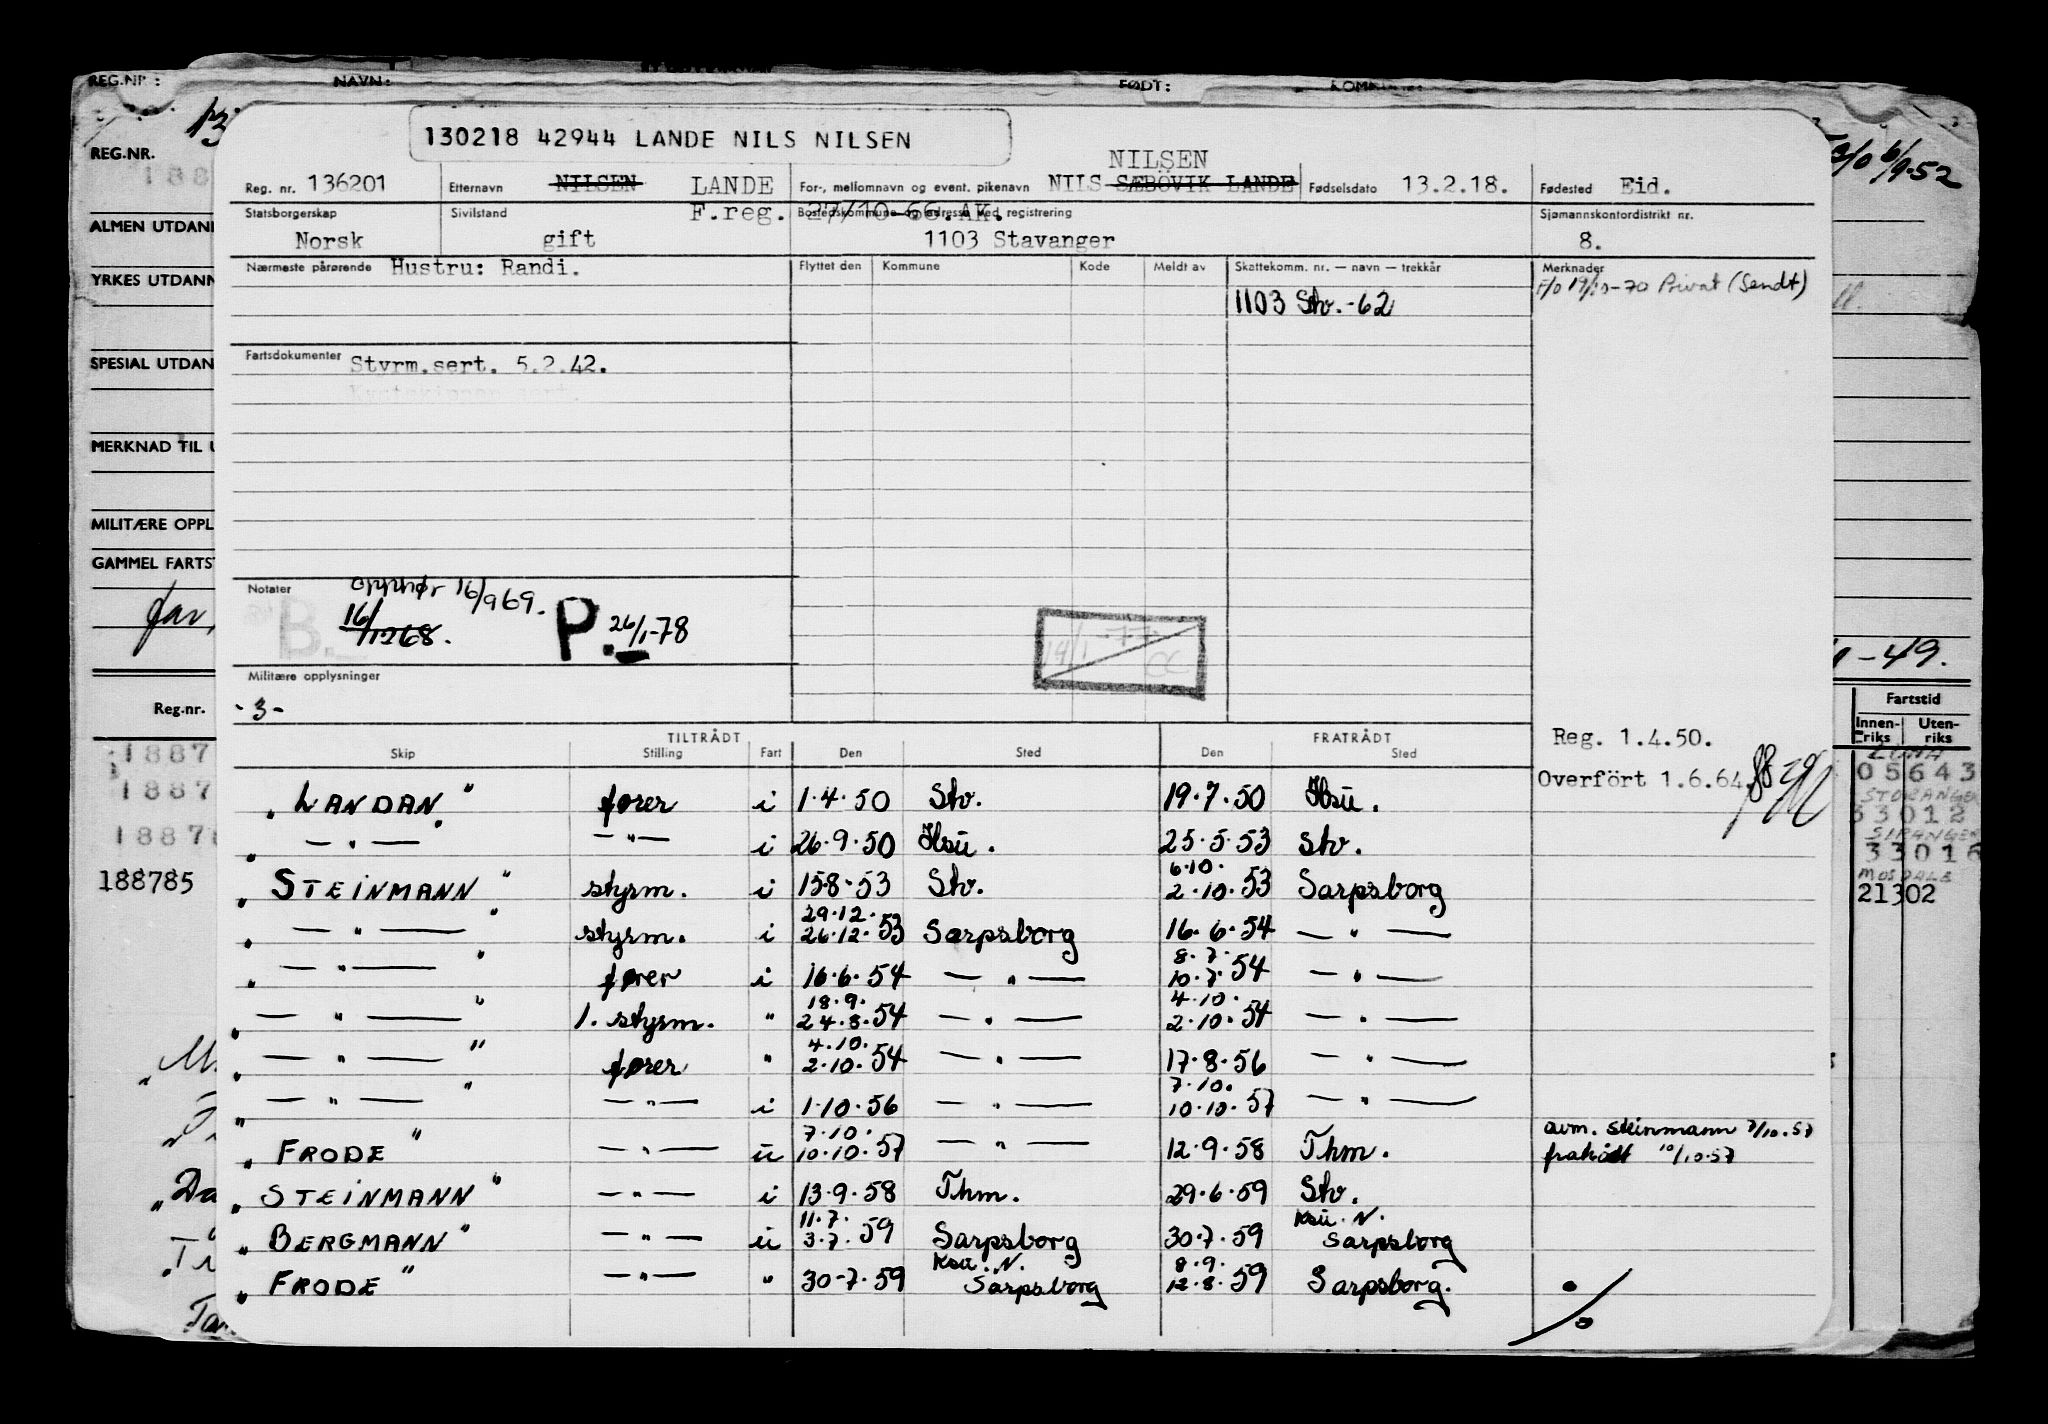 REG.NR.: NAVN: FØDT:
130218 42944 LANDE NILS NILSEN
REG.NR.
6/9-52
Reg. nr. 136201 Etternavn NILSEN LANDE For-, mellomnavn og event. pikenavn NILS SÆBÖVIK LANDE NILSEN Fødselsdato 13.2.18. Fødested Eid.
Statsborgerskap Norsk Sivilstand gift F.reg. 27/10-66. AK. Bostedskommune og adresse ved registrering 1103 Stavanger Sjømannskontordistrikt nr. 8.
ALMEN UTDAN
Nærmeste pårørende Hustru: Randi. Flyttet den Kommune Kode Meldt av Skattekomm. nr. — navn — trekkår Merknader
YRKES UTDANN
F/o 19/10-70 Privat (Sendt)
1103 Stv. -62
SPESIAL UTDAN
Fartsdokumenter Styrm.sert. 5.2.42.
MERKNAD TIL U
MILITÆRE OPPL
GAMMEL FARTS
Notater opphør 16/9 69.
B. 16/12 68. P. 26/1-78
14/1-77
-49.
Militære opplysninger
- 3 -
Reg.nr. Fartstid
Innenriks Utenriks
TILTRÅDT FRATRÅDT Reg. 1.4.50.
Skip Stilling Fart Den Sted Den Sted
Overfört 1.6.64.
1887 05643
"LANDAN" fører i 1.4.50 Stv. 19.7.50 Hsu.
1887 STORANGER
33012
" — " — — " — i 26.9.50 Hsu. 25.5.53 Stv.
1887 33016
188785 21302
"STEINMANN" styrm. i 15.8.53 Stv. 6.10. 2.10.53 Sarpsborg
" — " — " styrm. i 29.12. 26.12.53 Sarpsborg 16.6.54 — " —
" — " — " fører i 16.6.54 — " — 8.7. 10.7.54 — " —
" — " — " 1. styrm. " 18.9. 24.8.54 — " — 4.10. 2.10.54 — " —
" — " — " fører " 4.10. 2.10.54 — " — 17.8.56 — " —
" — " — " — " — i 1.10.56 — " — 7.10. 10.10.57 — " —
"FRODE" — " — u 7.10. 10.10.57 — " — 12.9.58 Thm. avm. Steinmann 7/10.57
fratrådt 10/10.57
"STEINMANN" — " — i 13.9.58 Thm. 29.6.59 Stv.
"BERGMANN" — " — u 11.7. 3.7.59 Sarpsborg 30.7.59 Ksu. N. Sarpsborg
"FRODE" — " — " 30-7.59 Ksu. N. Sarpsborg 8.9. 12.8.59 Sarpsborg.